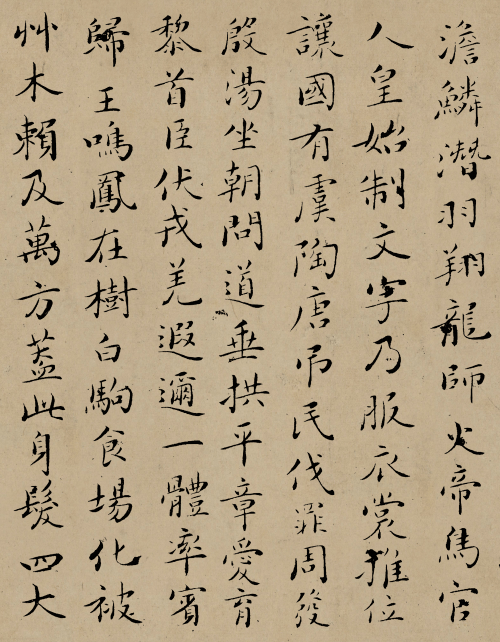 澹鱗潛羽翔龍師火帝鳥官
人皇始制文字乃服衣裳推位
讓國有虞陶唐吊民伐罪周發
殷湯坐朝問道垂拱平章愛育
黎首臣伏戎羌遐邇一體率賓
歸王鳴鳳在樹白駒食場化被
草木賴及萬方蓋此身髮四大